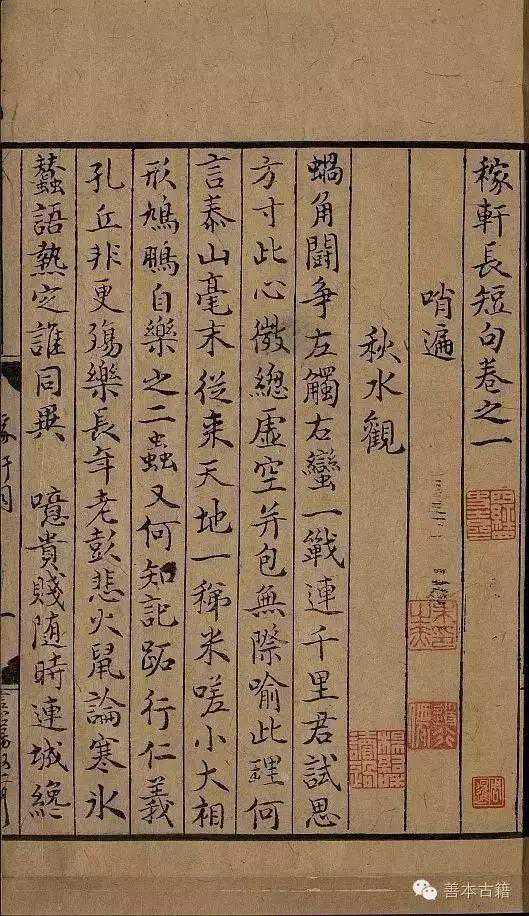 稼軒長短句卷之一
哨遍
秋水觀
蝸角鬪争左觸右蠻一戰連千里君試思
方寸此心微緫虛空并包無際喻此理何
言泰山毫末從来天地一稊米嗟小大相
形鳩鵬自樂之二蟲又何知記跖行仁義
孔丘非更殤樂長年老彭悲火鼠論寒氷
蠶語熱㝎誰同異　噫貴賤随時連城纔
善本古籍